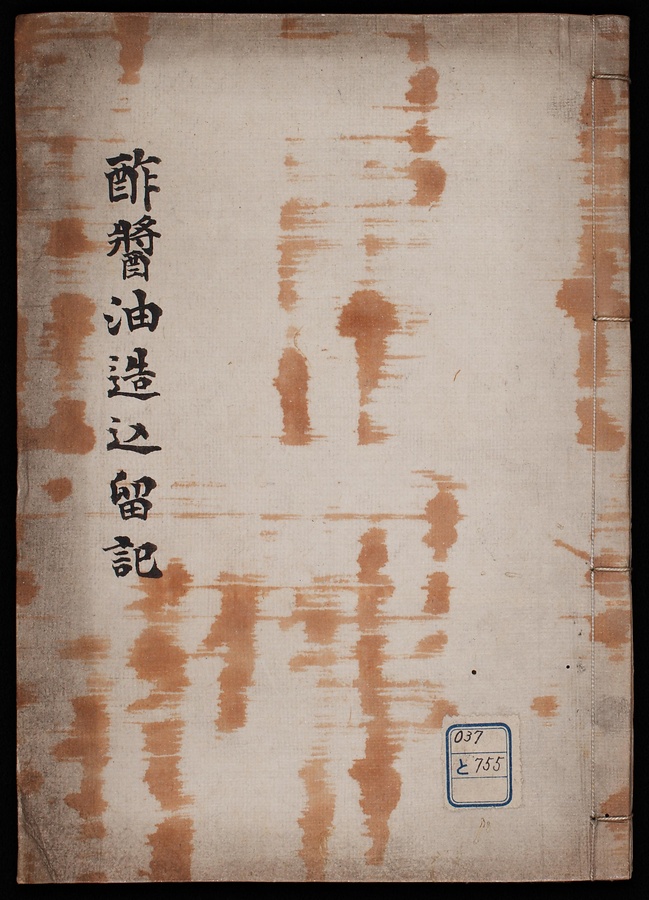 酢醬油造込留記
037
と755